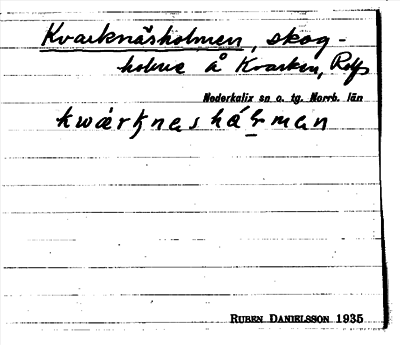 Kvarknäsholmen, skog-
holme å Kvarken, Rolfs
Nederkalix sn o. tg. Norrb. län
kwárknashálman
RUBEN DANIELSSON 1935